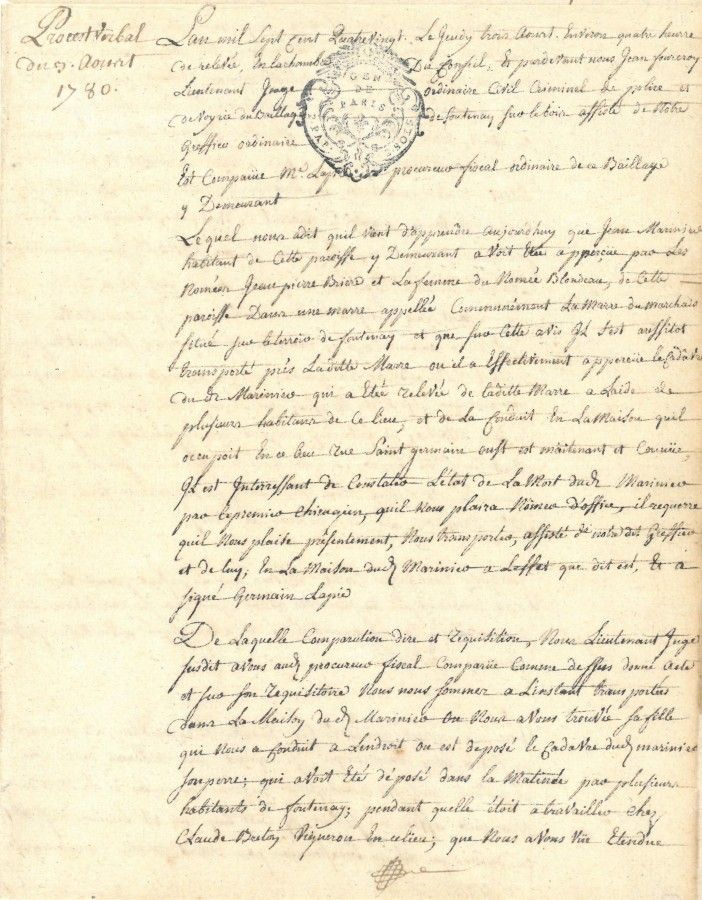 Procest Verbal
du 3. Aoust
1780.
L'an mil sept cent Quatrevingt, Le Jeudy trois Aoust. Environ quatre heure
de relevée, En la chambre Du Conseil, Et pardevant nous Jean fourcroy
Lieutenant Juge ordinaire Civil Criminel de police et
de Voyrie du Baillage de fontenay sur le bois assisté de Notre
Greffier ordinaire
GEN
DE
PARIS
Est Comparüe Me. procureur fiscal ordinaire de ce Baillage
y Demeurant
Lequel nous a dit quil vient d'apprendre aujourd'huy que Jean Marinier
habitant de Cette paroisse y Demeurant avoit Eté apperçue par Les
Nomées Jean pierre Briere et La femme du Nomée Blondeau, de Cette
paroisse Dans une marre appellée Communément La Marre du marchais
situé sur le terroir de fontenay et que sur Cette avis Il s'est aussitot
transporté près Laditte Marre ou il a Effectivement apperçue le Cadavre
du d. Marinier qui a Eté relevée de laditte Marre a Laide de
plusieurs habitans de Ce lieu, et de La Conduit En La Maison quil
occupoit En ce lieu rue Saint germain est maitenant et
Il est Interressant de Constater L'état de La Mort dud. Marinier
par le premier chirurgien, quil Nous plaira Nomer d'office, il requerre
quil Nous plaise présentement, Nous transporter, assisté de notre dit Greffier
et de luy, En La Maison dud. Marinier a Leffet que dit est, Et a
signé Germain Lapie
De Laquelle Comparution dire et requisition, Nous Lieutenant Juge
susdit avons aud. procureur fiscal Comparüe Comme dessus donné acte
et sur son requisitoire Nous nous sommes a L'instant transportés
dans La Maison du d. Marinier ou Nous avons trouvée sa fille
qui Nous a Conduit a Lendroit ou est déposé le Cadavre dud. marinier
son pere; qui avoit Eté déposé dans la Matinée par plusieurs
habitants de fontenay; pendant quelle étoit a travailler chez
Claude Breton Vigneron En ce lieu; que Nous avons Vüe Etendue